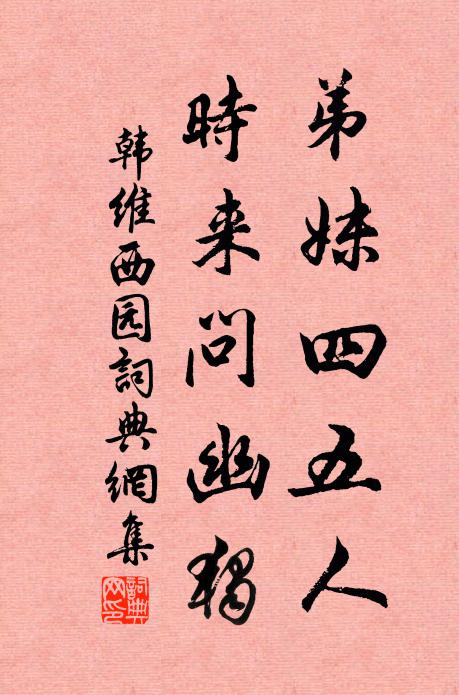 弟妹四五人
時来問幽獨
韩維西园詞典網集
詞典
网印